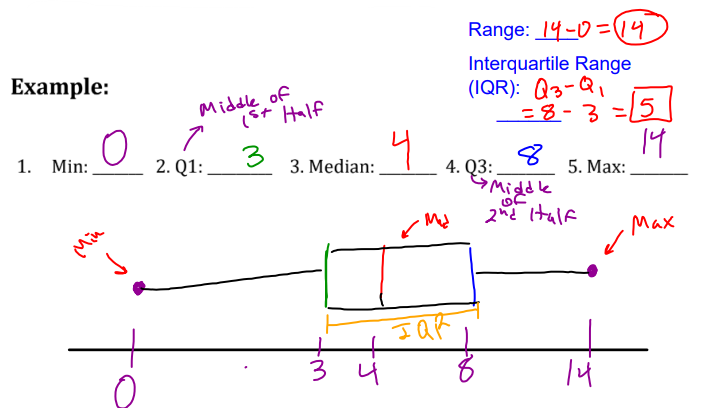 Range: 14-0 = 14
Interquartile Range
(IQR): Q3-Q1
= 8 - 3 = 5
Example:
Middle of
1st Half
1. Min: 0 2. Q1: 3 3. Median: 4 4. Q3: 8 5. Max: 14
Middle
of
2nd Half
Min
Med
Max
IQR
0 3 4 8 14